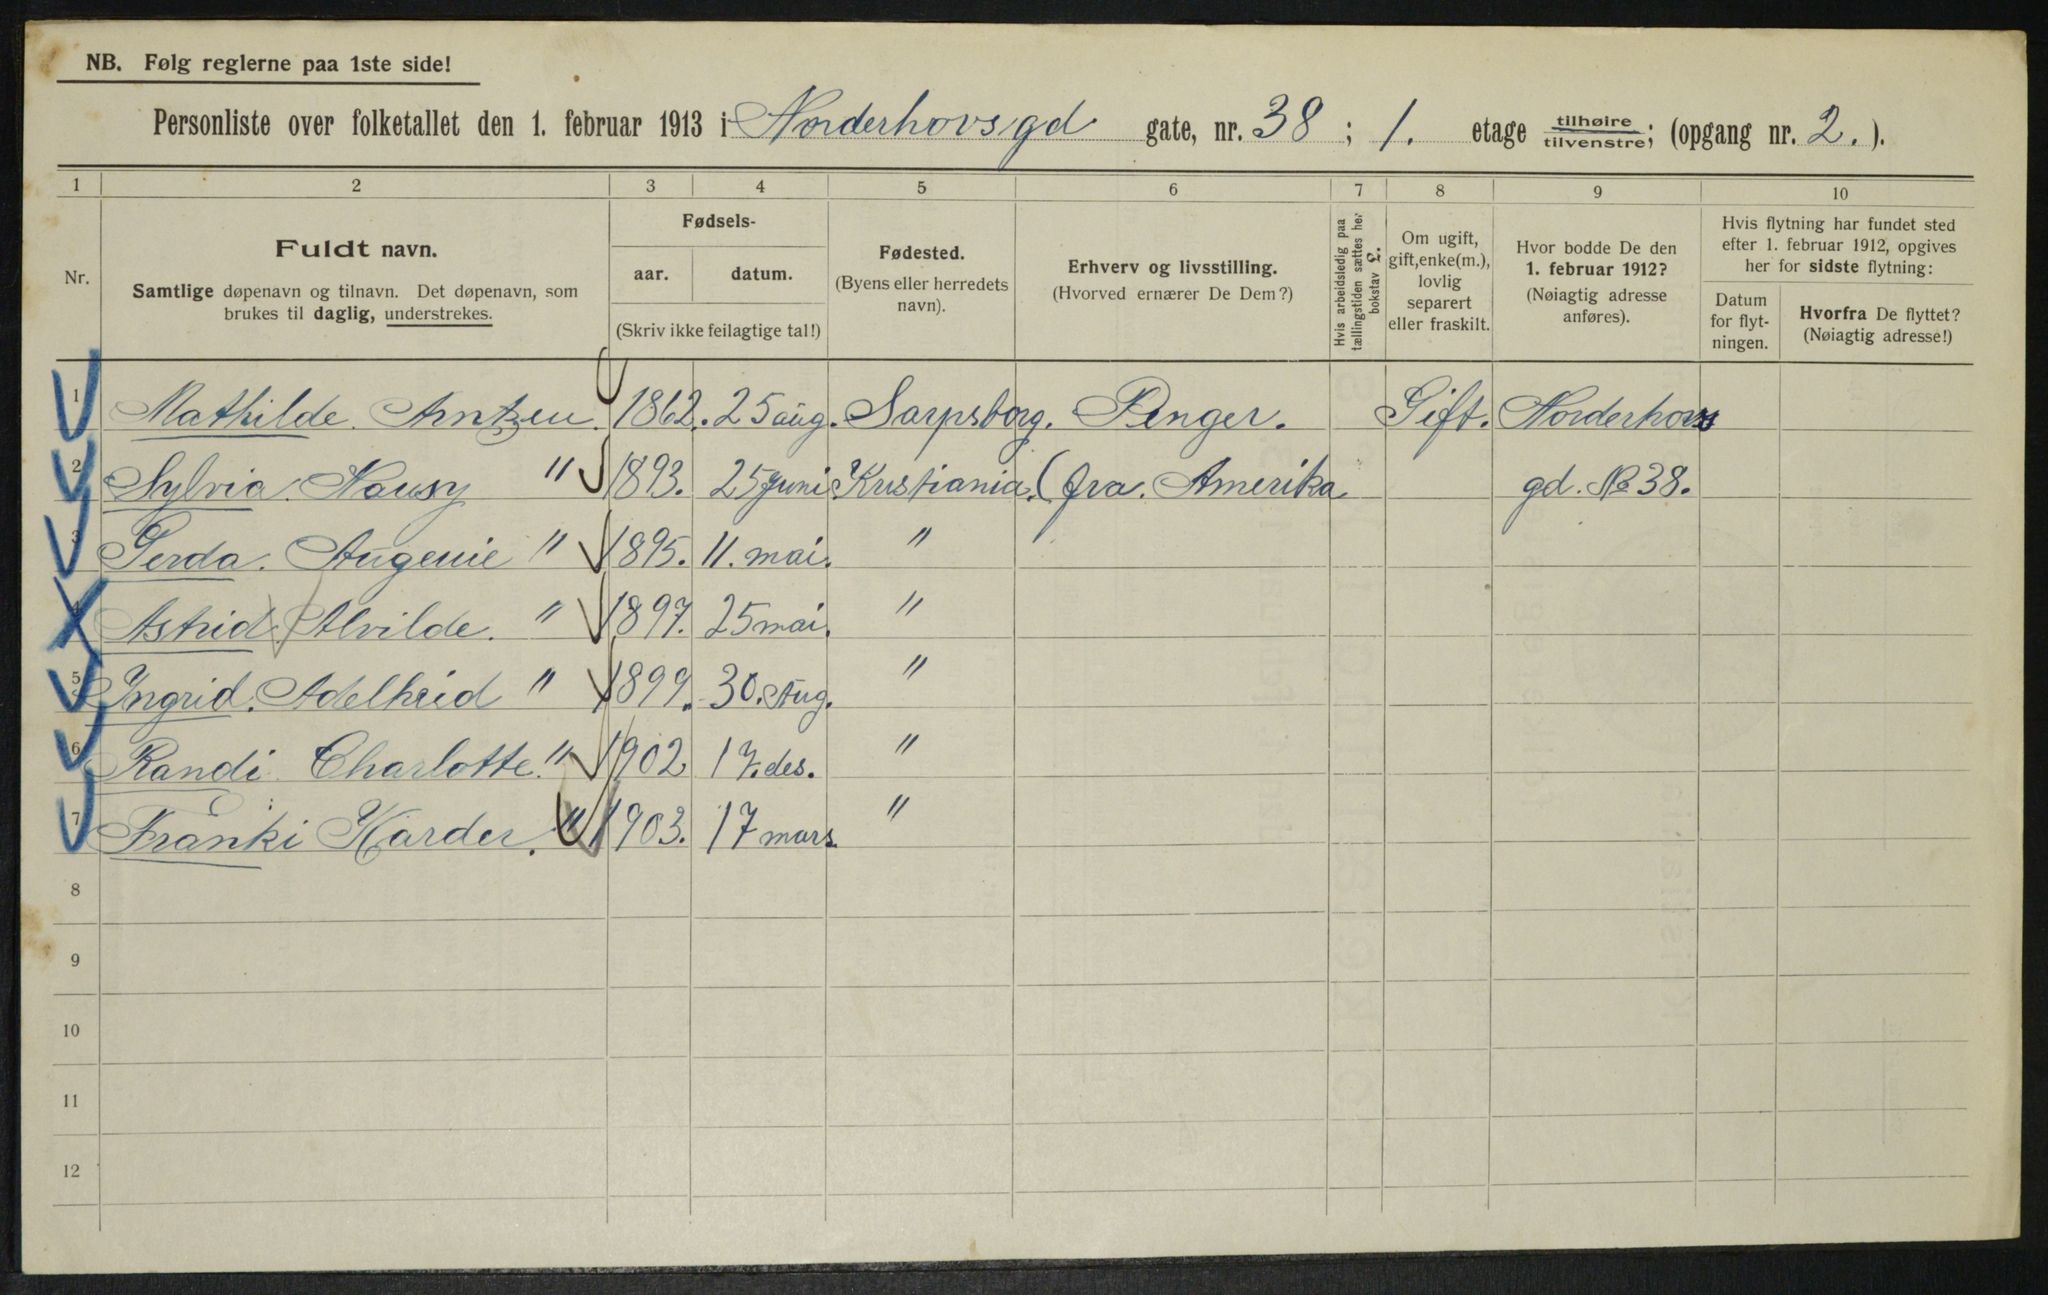 NB. Følg reglerne paa 1ste side!
Personliste over folketallet den 1. februar 1913 i Norderhovsgd gate, nr. 38 ; 1. etage tilhøire tilvenstre; (opgang nr. 2. ).
1 2 3 4 5 6 7 8 9 10
Nr.
Fuldt navn.
Samtlige døpenavn og tilnavn. Det døpenavn, som
brukes til daglig, understrekes.
Fødsels-
aar. datum.
(Skriv ikke feilagtige tal!)
Fødested.
(Byens eller herredets
navn).
Erhverv og livsstilling.
(Hvorved ernærer De Dem?)
Hvis arbeidsledig paa
tællingstiden sættes her
bokstav L.
Om ugift,
gift, enke(m.),
lovlig
separert
eller fraskilt.
Hvor bodde De den
1. februar 1912?
(Nøiagtig adresse
anføres).
Hvis flytning har fundet sted
efter 1. februar 1912, opgives
her for sidste flytning:
Datum
for flyt-
ningen.
Hvorfra De flyttet?
(Nøiagtig adresse!)
1 Mathilde. Arntzen. 1862. 25 aug. Sarpsborg. Penger. Gift. Norderhovs
2 Sylvia. Nausy " 1893. 25 juni Kristiania. (fra. Amerika gd. No 38.
3 Gerda. Augenie " 1895. 11. mai. "
4 Astrid. Alvilde. " 1897. 25 mai. "
5 Yngrid. Adelheid " 1899. 30. Aug. "
6 Randi Charlotte. " 1902 17. des. "
7 Franki Harder. " 1903. 17 mars. "
8
9
10
11
12